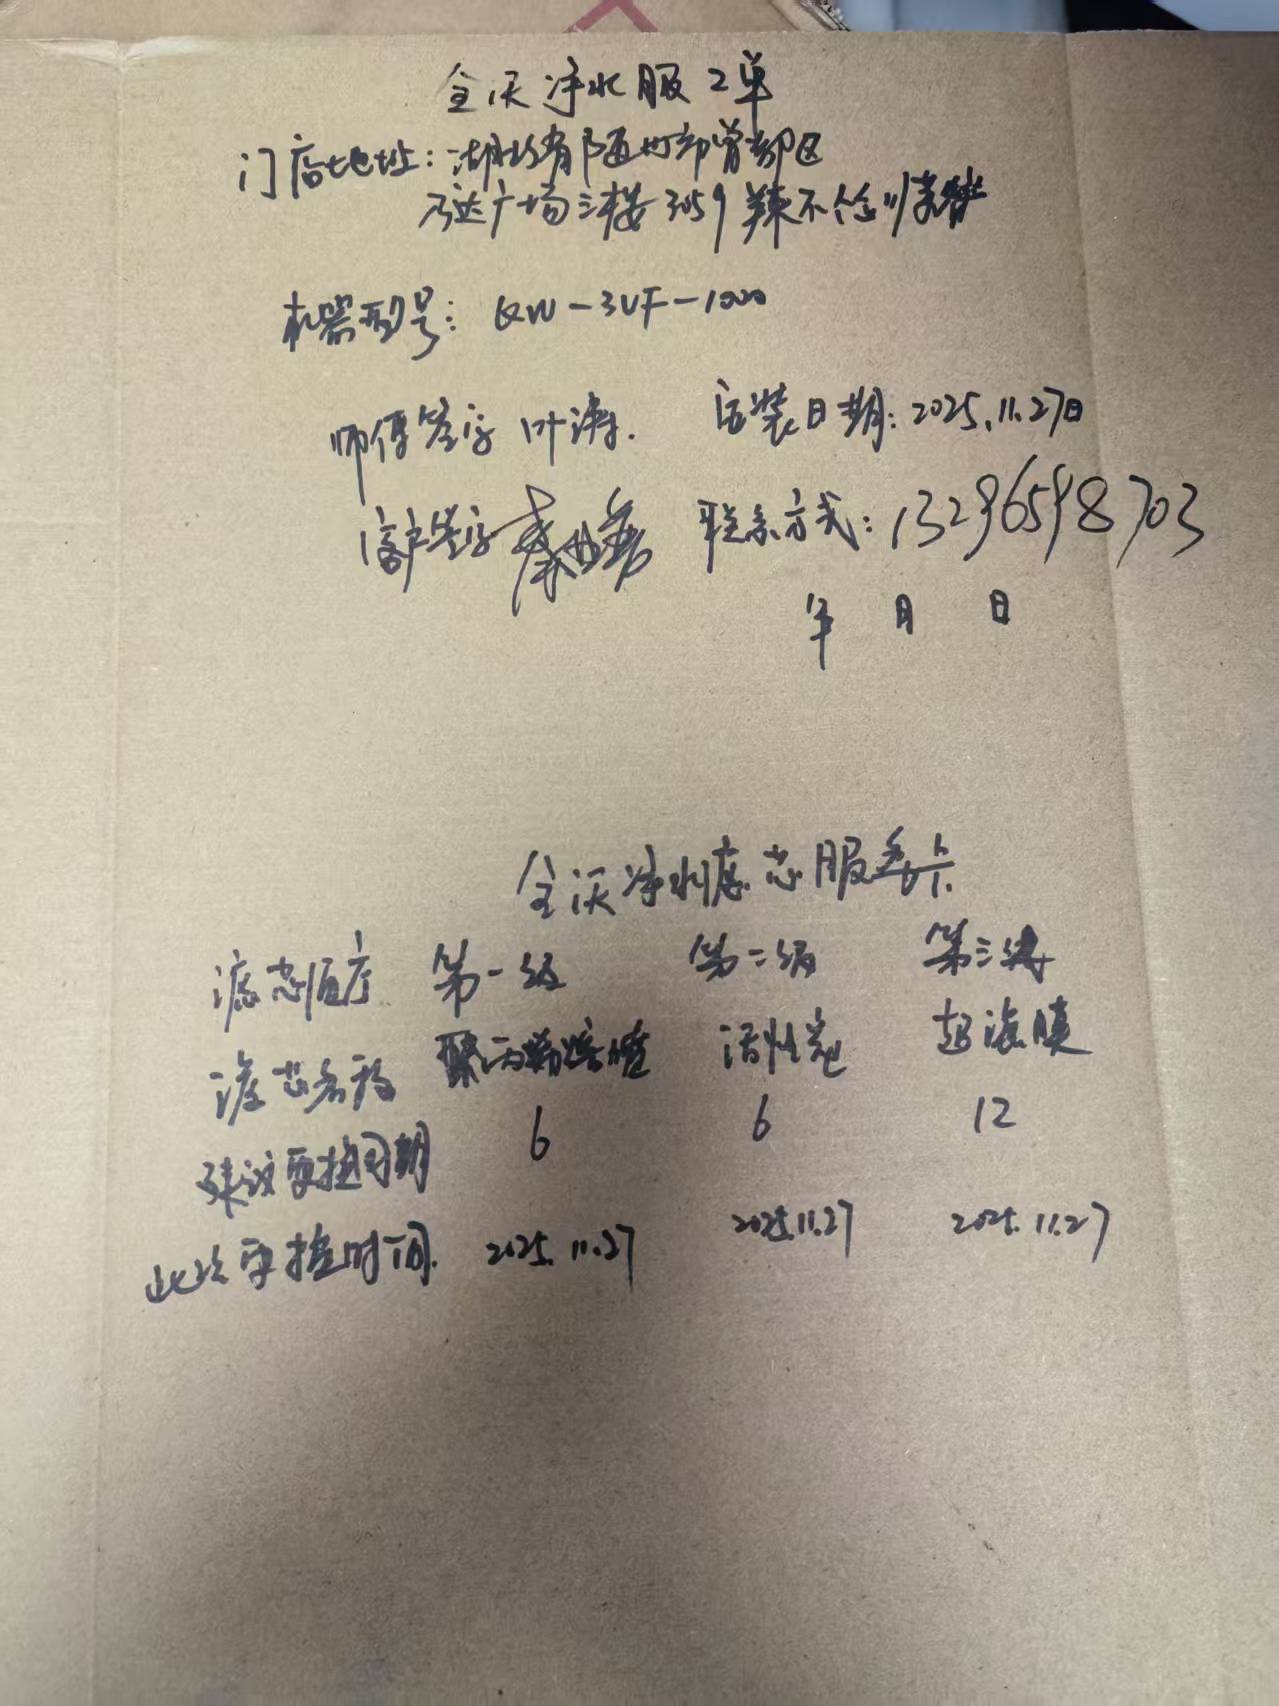 全沃净水服工单
门店地址：湖北省随州市曾都区
万达广场三楼3059辣不怕川菜馆
机器型号：QW-3UF-1000
师傅签字 叶涛. 安装日期：2025.11.27日
客户签字 联系方式：13296598703
年 月 日
全沃净水滤芯服务卡
滤芯顺序 第一级 第二级 第三级
滤芯名称 聚丙烯熔喷 活性炭 超滤膜
建议更换周期 6 6 12
此次更换时间. 2025.11.27 2025.11.27 2025.11.27